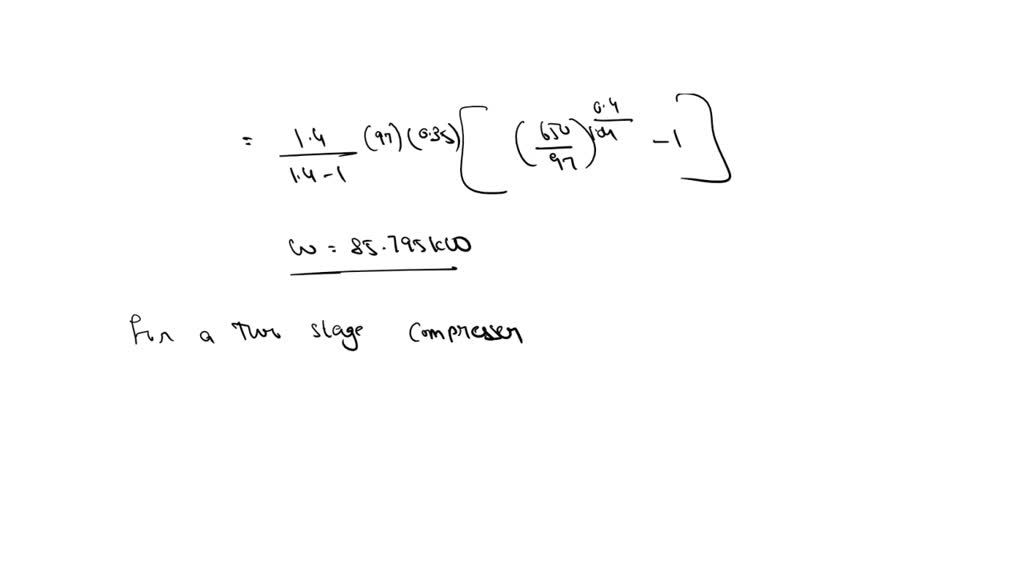 = 1.4 / 1.4-1 (97) (0.35) [ (650/97)^0.4/1.4 - 1 ]
W = 85.795 kW
For a two stage compresser